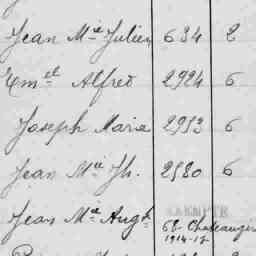 Jean Mie Julien 634 2
Emel Alfred 2924 6
Joseph Marie 2953 6
Jean Mie Jh. 2580 6
Jean Mie Augte EXEMPTÉ 68 Chateaugir
1914-17